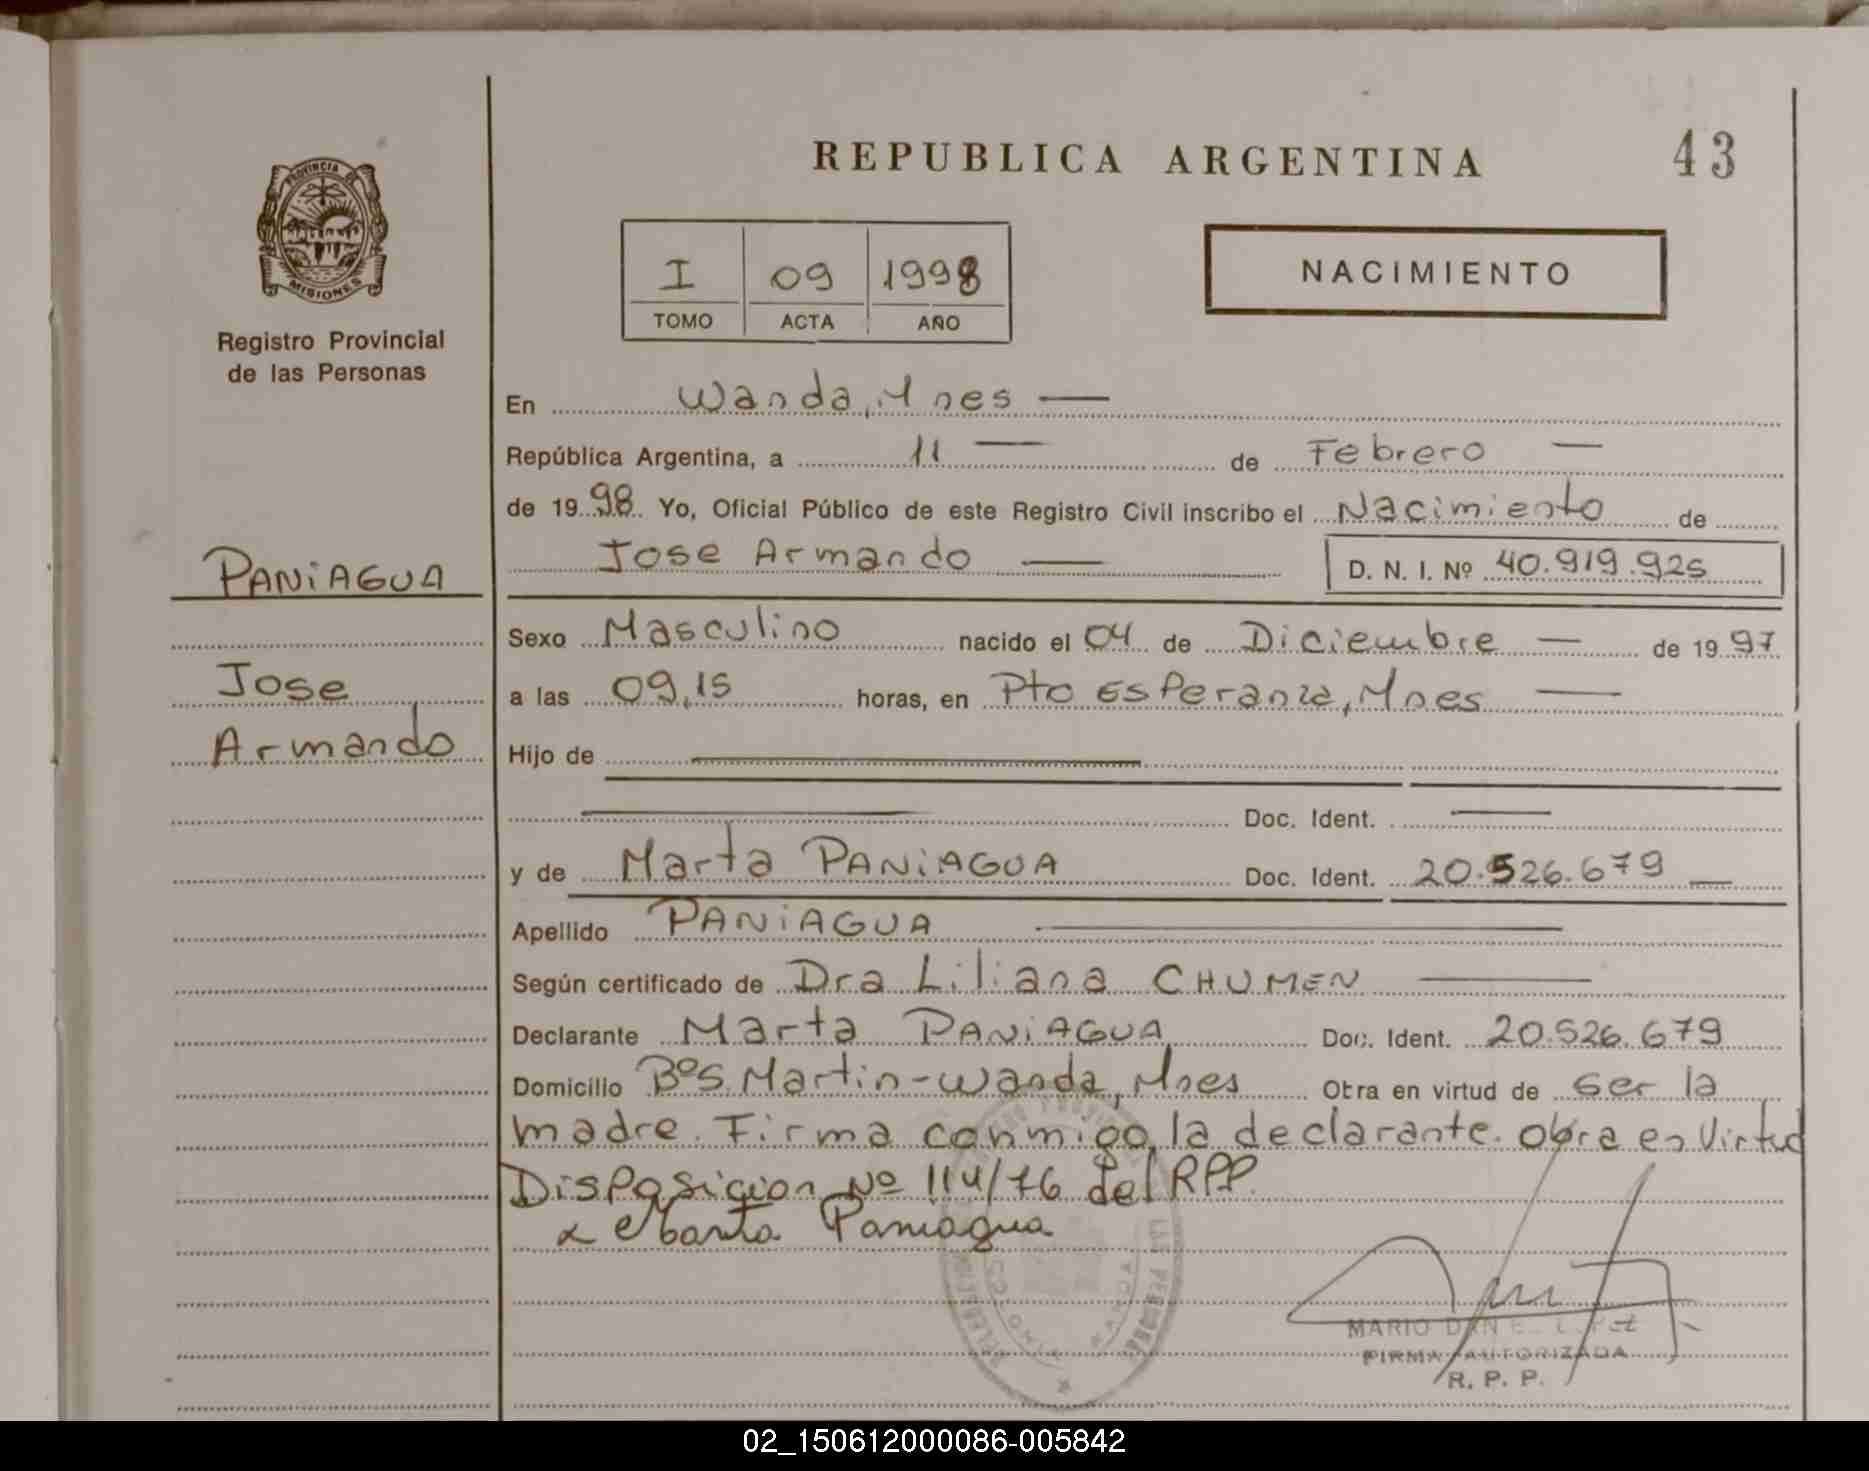 REPUBLICA ARGENTINA
43
PROVINCIA DE
MISIONES
Registro Provincial
de las Personas
I 09 1998
TOMO ACTA AÑO
NACIMIENTO
En Wanda, Mnes
República Argentina, a 11 de Febrero
de 1998 Yo, Oficial Público de este Registro Civil inscribo el Nacimiento de
Jose Armando D. N. I. Nº 40.919.925
PANiAGUA
Jose
Armando
Sexo Masculino nacido el 04 de Diciembre de 1997
a las 09,15 horas, en Pto EsPeranza, Mnes
Hijo de
Doc. Ident.
y de Marta PANiAGUA Doc. Ident. 20.526.679
Apellido PANiAGUA
Según certificado de Dra Liliana CHUMEN
Declarante Marta PANiAGUA Doc. Ident. 20.526.679
Domicilio BºS. Martin-Wanda, Mnes Obra en virtud de ser la
madre. Firma conmigo la declarante. Obra en Virtud
DisPosicion Nº 114/76 del RPP.
x Marta Paniagua
MARIO DANIEL LOPEZ
FIRMA AUTORIZADA
R. P. P.
02_150612000086-005842